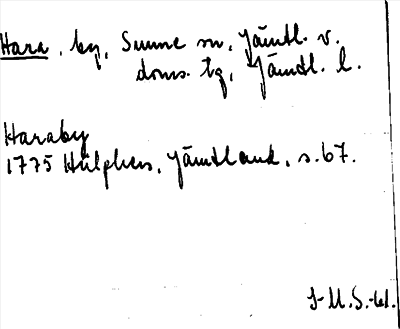 Hara, by, Sunne sn, Jämtl. v.
doms. tg, Jämtl. l.
Haraby
1775 Hülphers, Jämtland, s. 67.